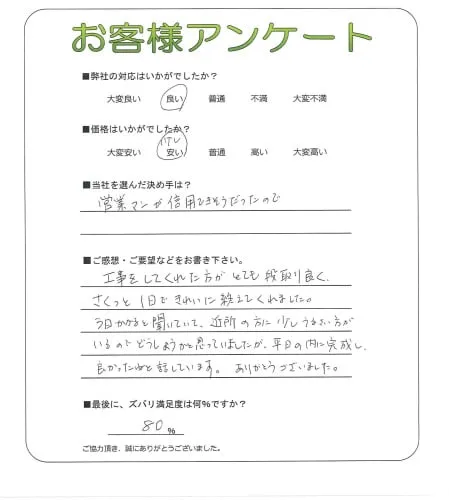 お客様アンケート
■弊社の対応はいかがでしたか？
大変良い 良い 普通 不満 大変不満
■価格はいかがでしたか？
少し
大変安い 安い 普通 高い 大変高い
■当社を選んだ決め手は？
営業マンが信用できそうだったので
■ご感想・ご要望などをお書き下さい。
工事をしてくれた方がとても段取り良く、
さくっと1日できれいに整えてくれました。
今日かかると聞いていて、近所の方に少しうるさい方が
いるのでどうしようかと思っていましたが、平日の内に完成し、
良かったねと話しています。 ありがとうございました。
■最後に、ズバリ満足度は何％ですか？
80 %
ご協力頂き、誠にありがとうございました。